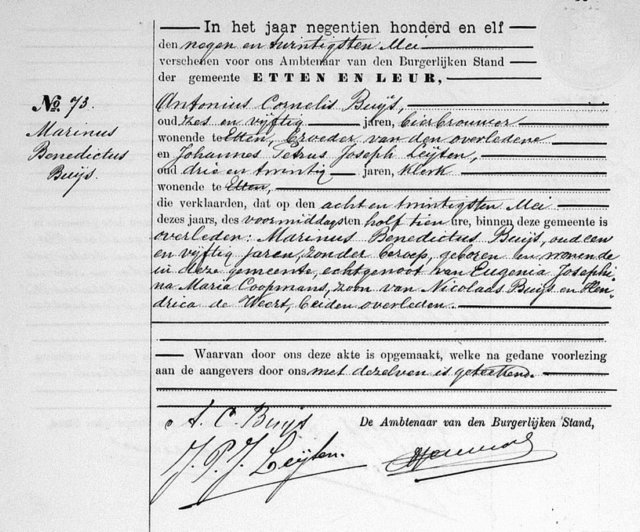 In het jaar negentien honderd en elf
den negen en twintigsten Mei
verschenen voor ons Ambtenaar van den Burgerlijken Stand
der gemeente ETTEN EN LEUR,
No. 73.
Marinus
Benedictus
Buijs.
Antonius Cornelis Buijs,
oud zes en vijftig jaren, bierbrouwer
wonende te Etten, broeder van den overledene
en Johannes Petrus Joseph Leijten,
oud drie en twintig jaren, klerk
wonende te Etten,
die verklaarden, dat op den acht en twintigsten Mei
dezes jaars, des voormiddags ten half tien ure, binnen deze gemeente is
overleden: Marinus Benedictus Buijs, oud een
en vijftig jaren, zonder beroep, geboren en wonende
in deze gemeente, echtgenoot van Eugenia Josephi-
na Maria Coopmans, zoon van Nicolaas Buijs en Hen-
drica de Weert, beiden overleden.
Waarvan door ons deze akte is opgemaakt, welke na gedane voorlezing
aan de aangevers door ons met dezelven is geteekend.
A. C. Buijs
De Ambtenaar van den Burgerlijken Stand,
J. P. J. Leijten.